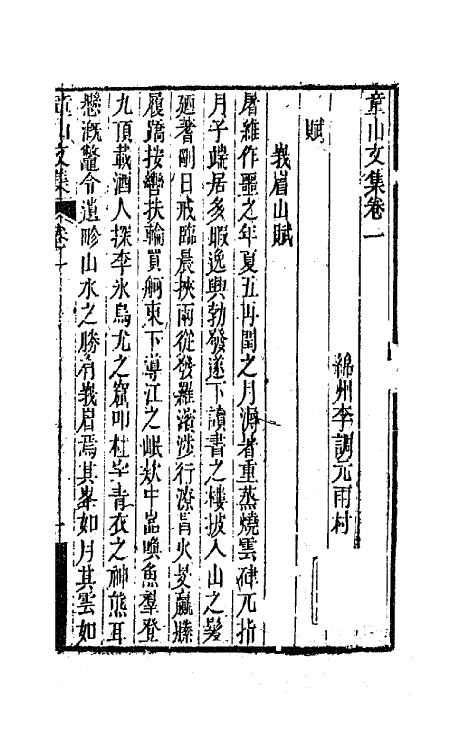 童山文集卷一
綿州李調元雨村
賦
峩眉山賦
屠維作噩之年夏五再閏之月溽暑重蒸燒雲硉兀指
月子踡居多暇逸興勃發遂下讀書之樓披入山之髮
廼蓍剛日戒臨晨挾兩從發羅濱涉行潦冐火旻贏縢
履蹻按轡扶輪買舸東下導江之岷欸中嵓喚魚羣登
九頂載酒人探李氷烏尤之窟叩杜宇青衣之神熊耳
鱉令遺畛山水之勝有峩眉焉其峯如月其雲如
童山文集 卷一 一